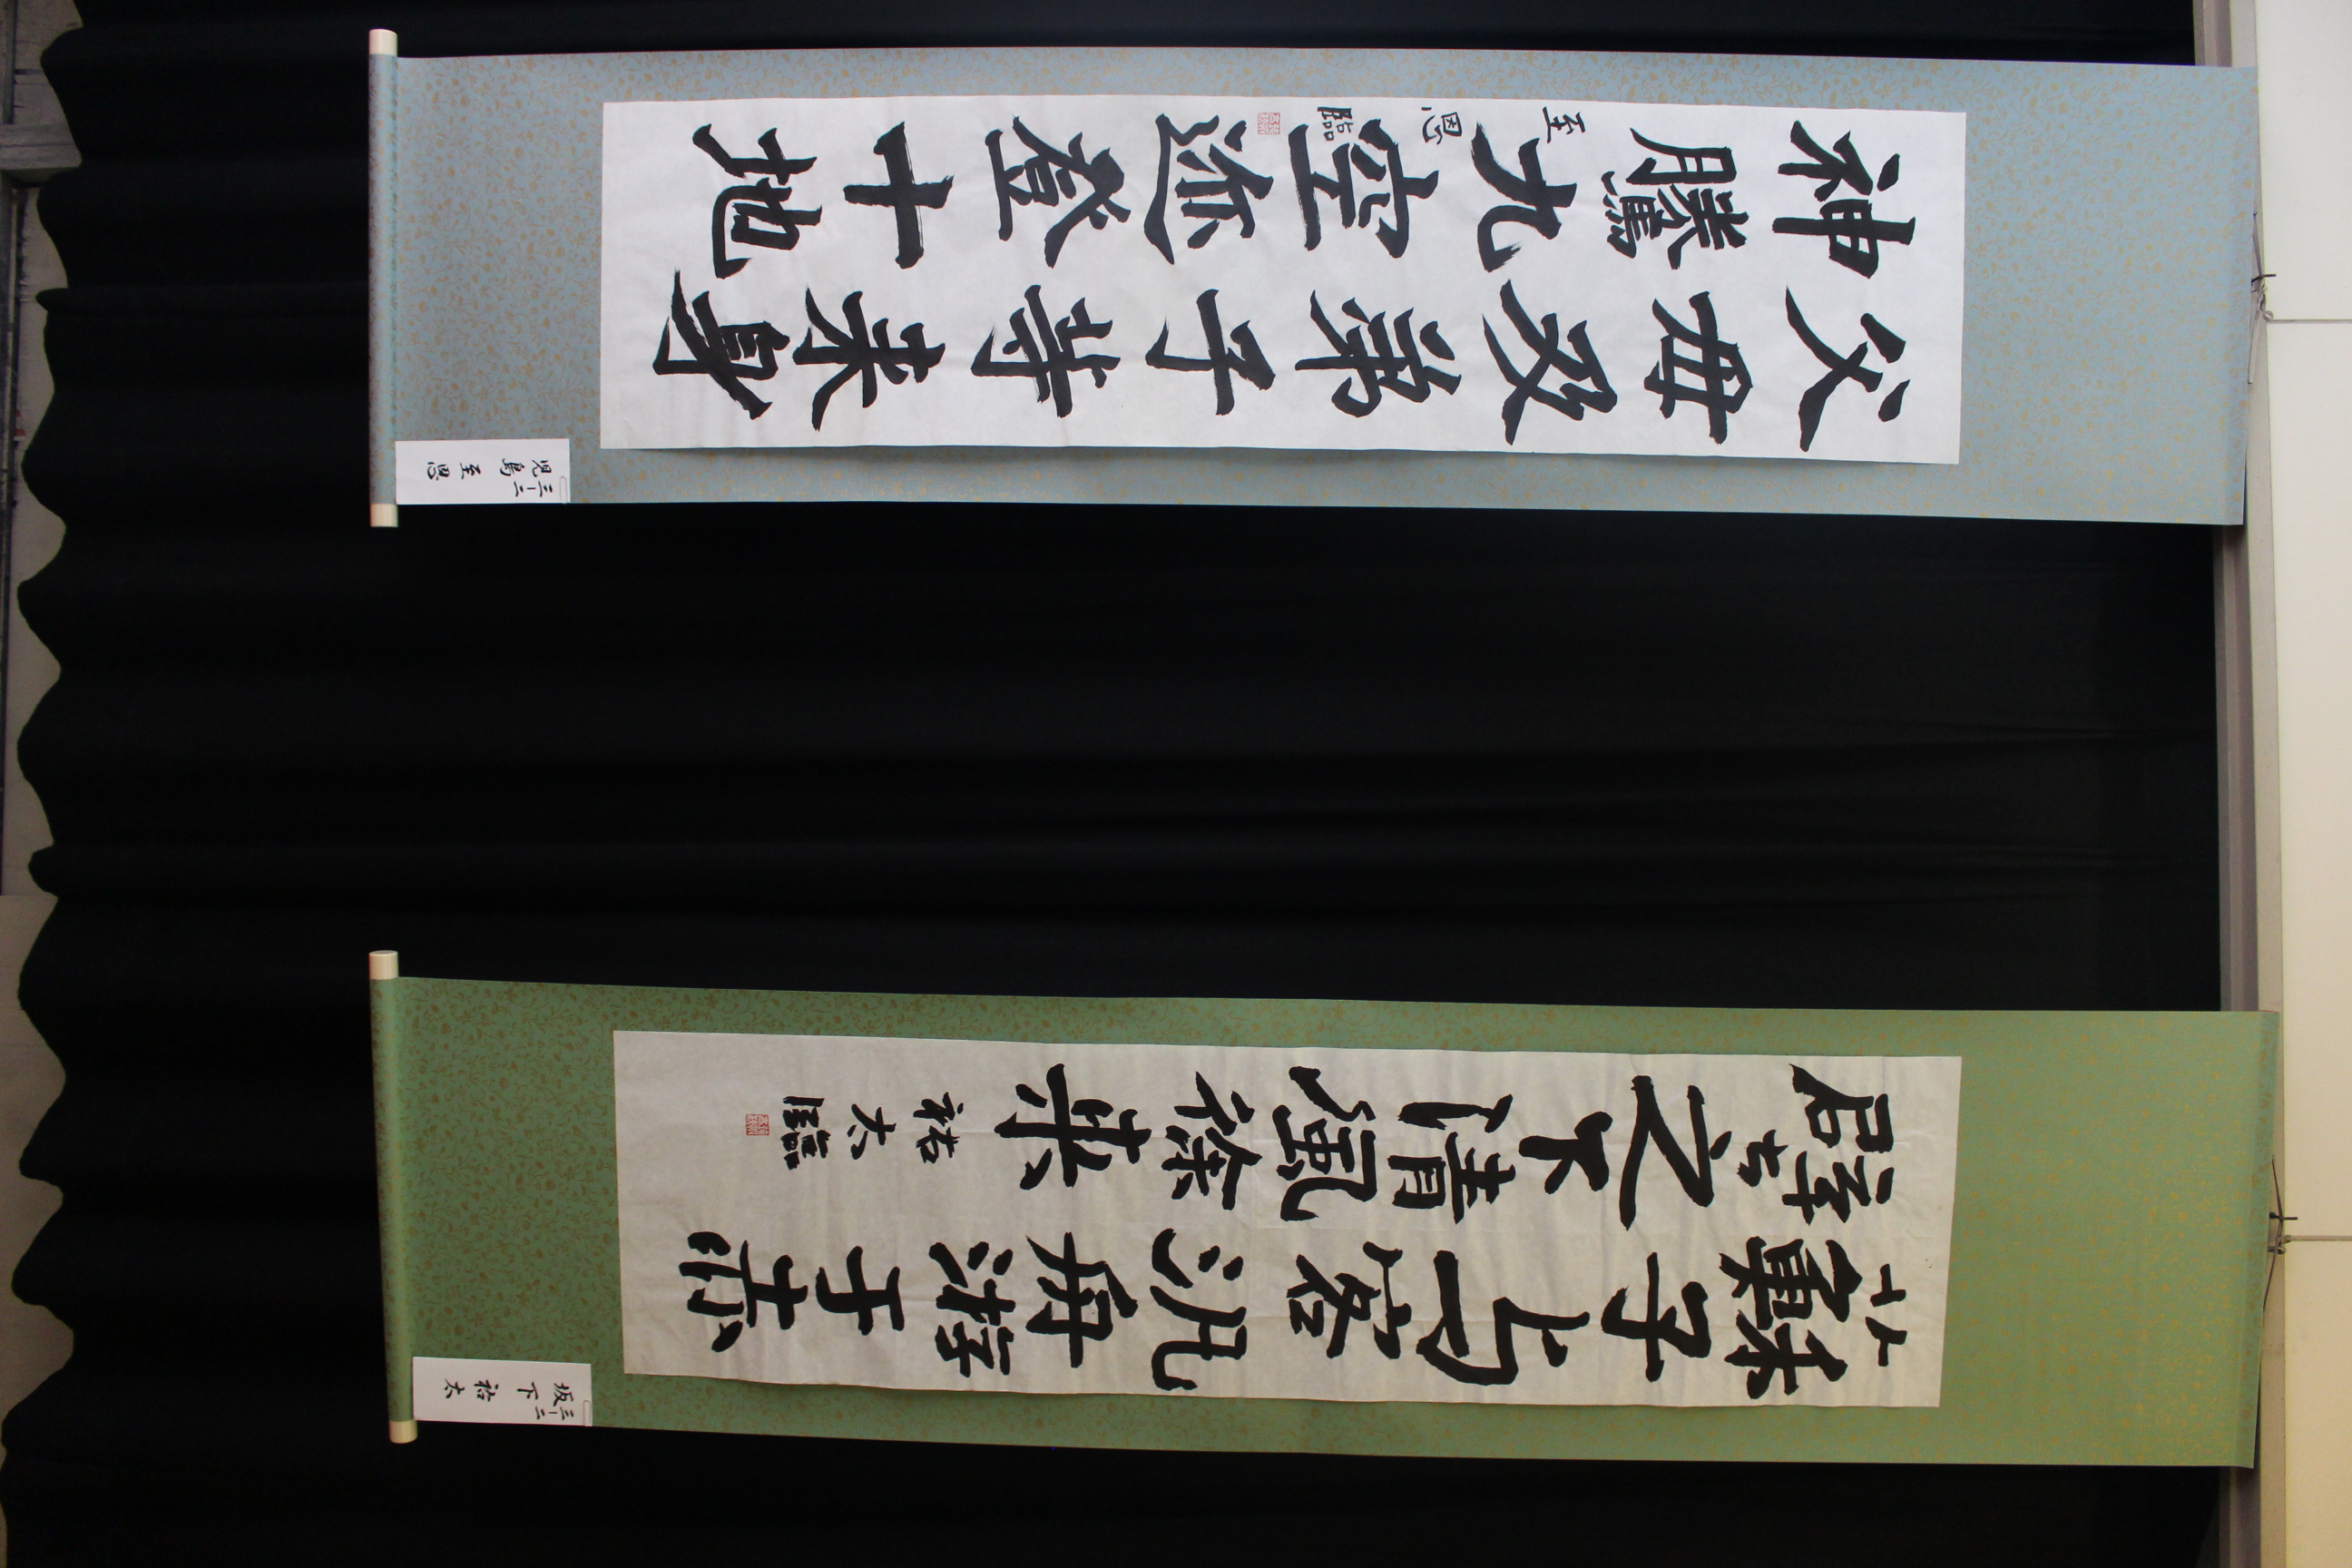 蘇子与客泛舟游于赤
壁之下清風徐来
祐太臨
三-二
坂下祐太
父母及弟子等来身
神騰九空迹登十地
至恩臨
三-二
児島至恩